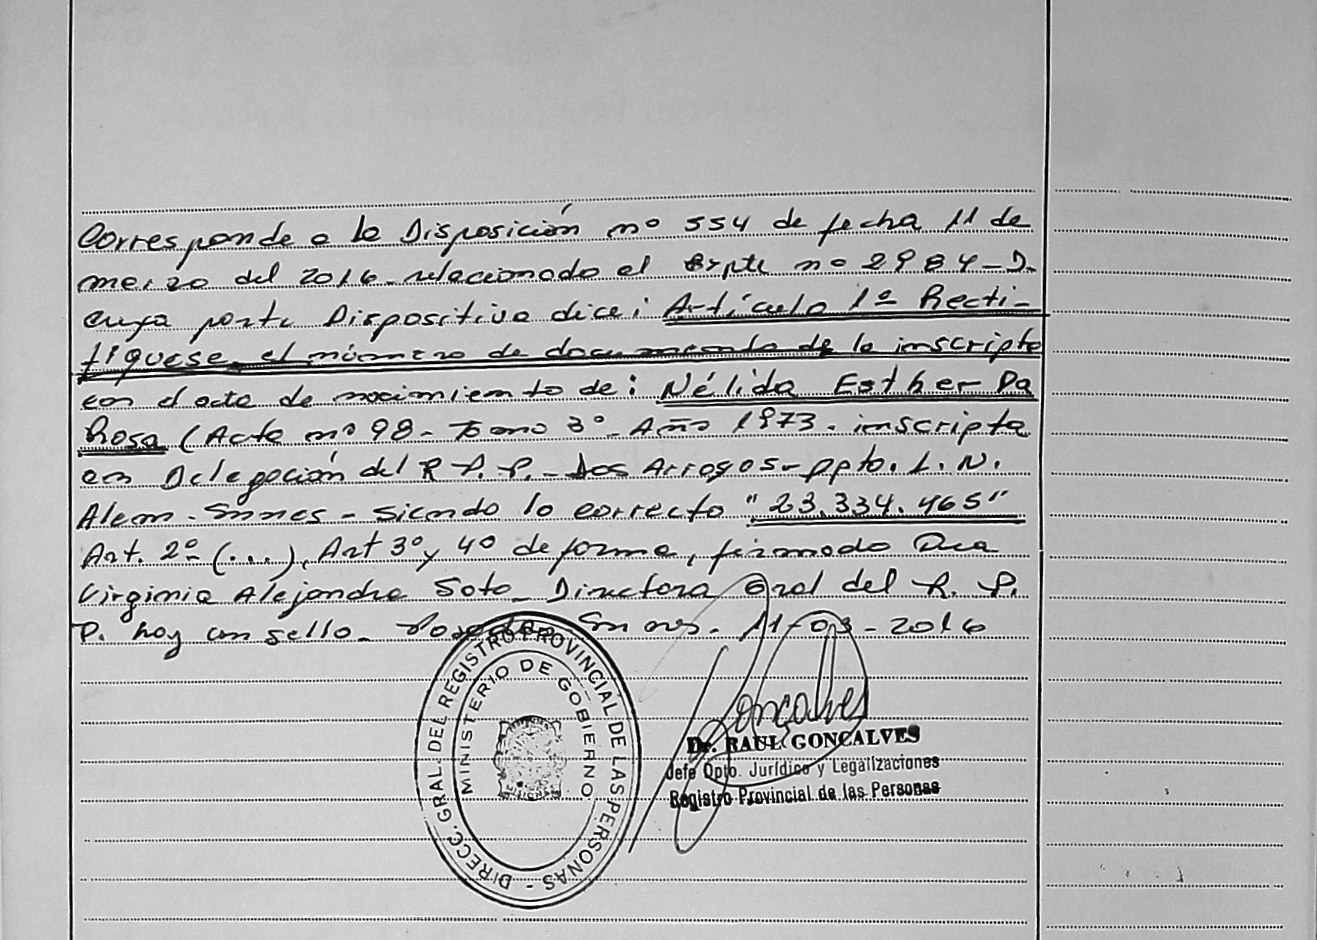 Corresponde a la Disposición nº 554 de fecha 11 de
marzo del 2016 - relacionado al Expte nº 2984-D.
cuya parte Dispositiva dice: Artículo 1º Recti-
fíquese, el número de documento de la inscripta
en el acta de nacimiento de: Nélida Esther Da
Rosa (Acta nº 98 - Tomo 3º - Año 1973. inscripta
en Delegación del R.P.P. - Dos Arroyos - Dpto. L.N.
Alem - Snnes - siendo lo correcto "23.334.465"
Art. 2º (...), Art 3º y 4º de forma, firmado Dra
Virginia Alejandra Soto - Directora Gral del R.P.
P. hoy un sello - Posadas Snnes. 11-03-2016
DIRECC. GRAL. DEL REGISTRO PROVINCIAL DE LAS PERSONAS -
MINISTERIO DE GOBIERNO
Goncalves
Dr. RAUL GONCALVES
Jefe Dpto. Jurídico y Legalizaciones
Registro Provincial de las Personas